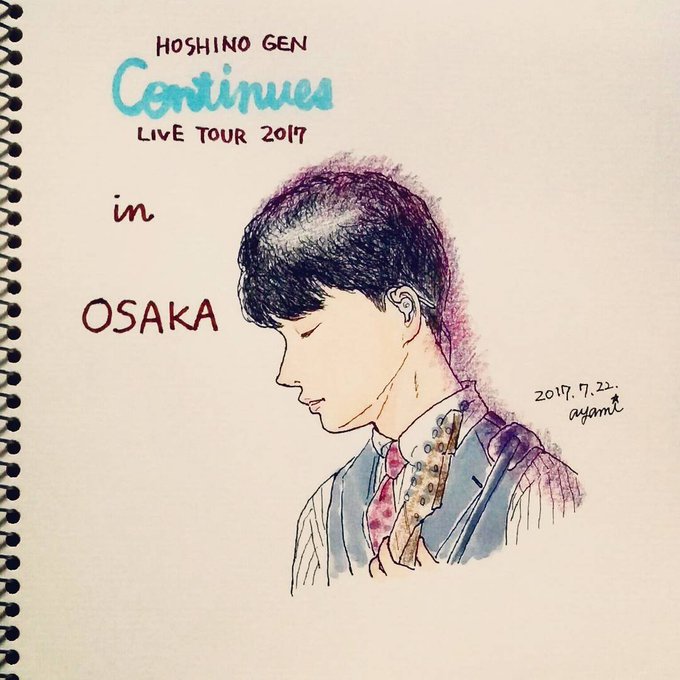 HOSHINO GEN
Continues
LIVE TOUR 2017
in
OSAKA
2017.7.22.
ayami